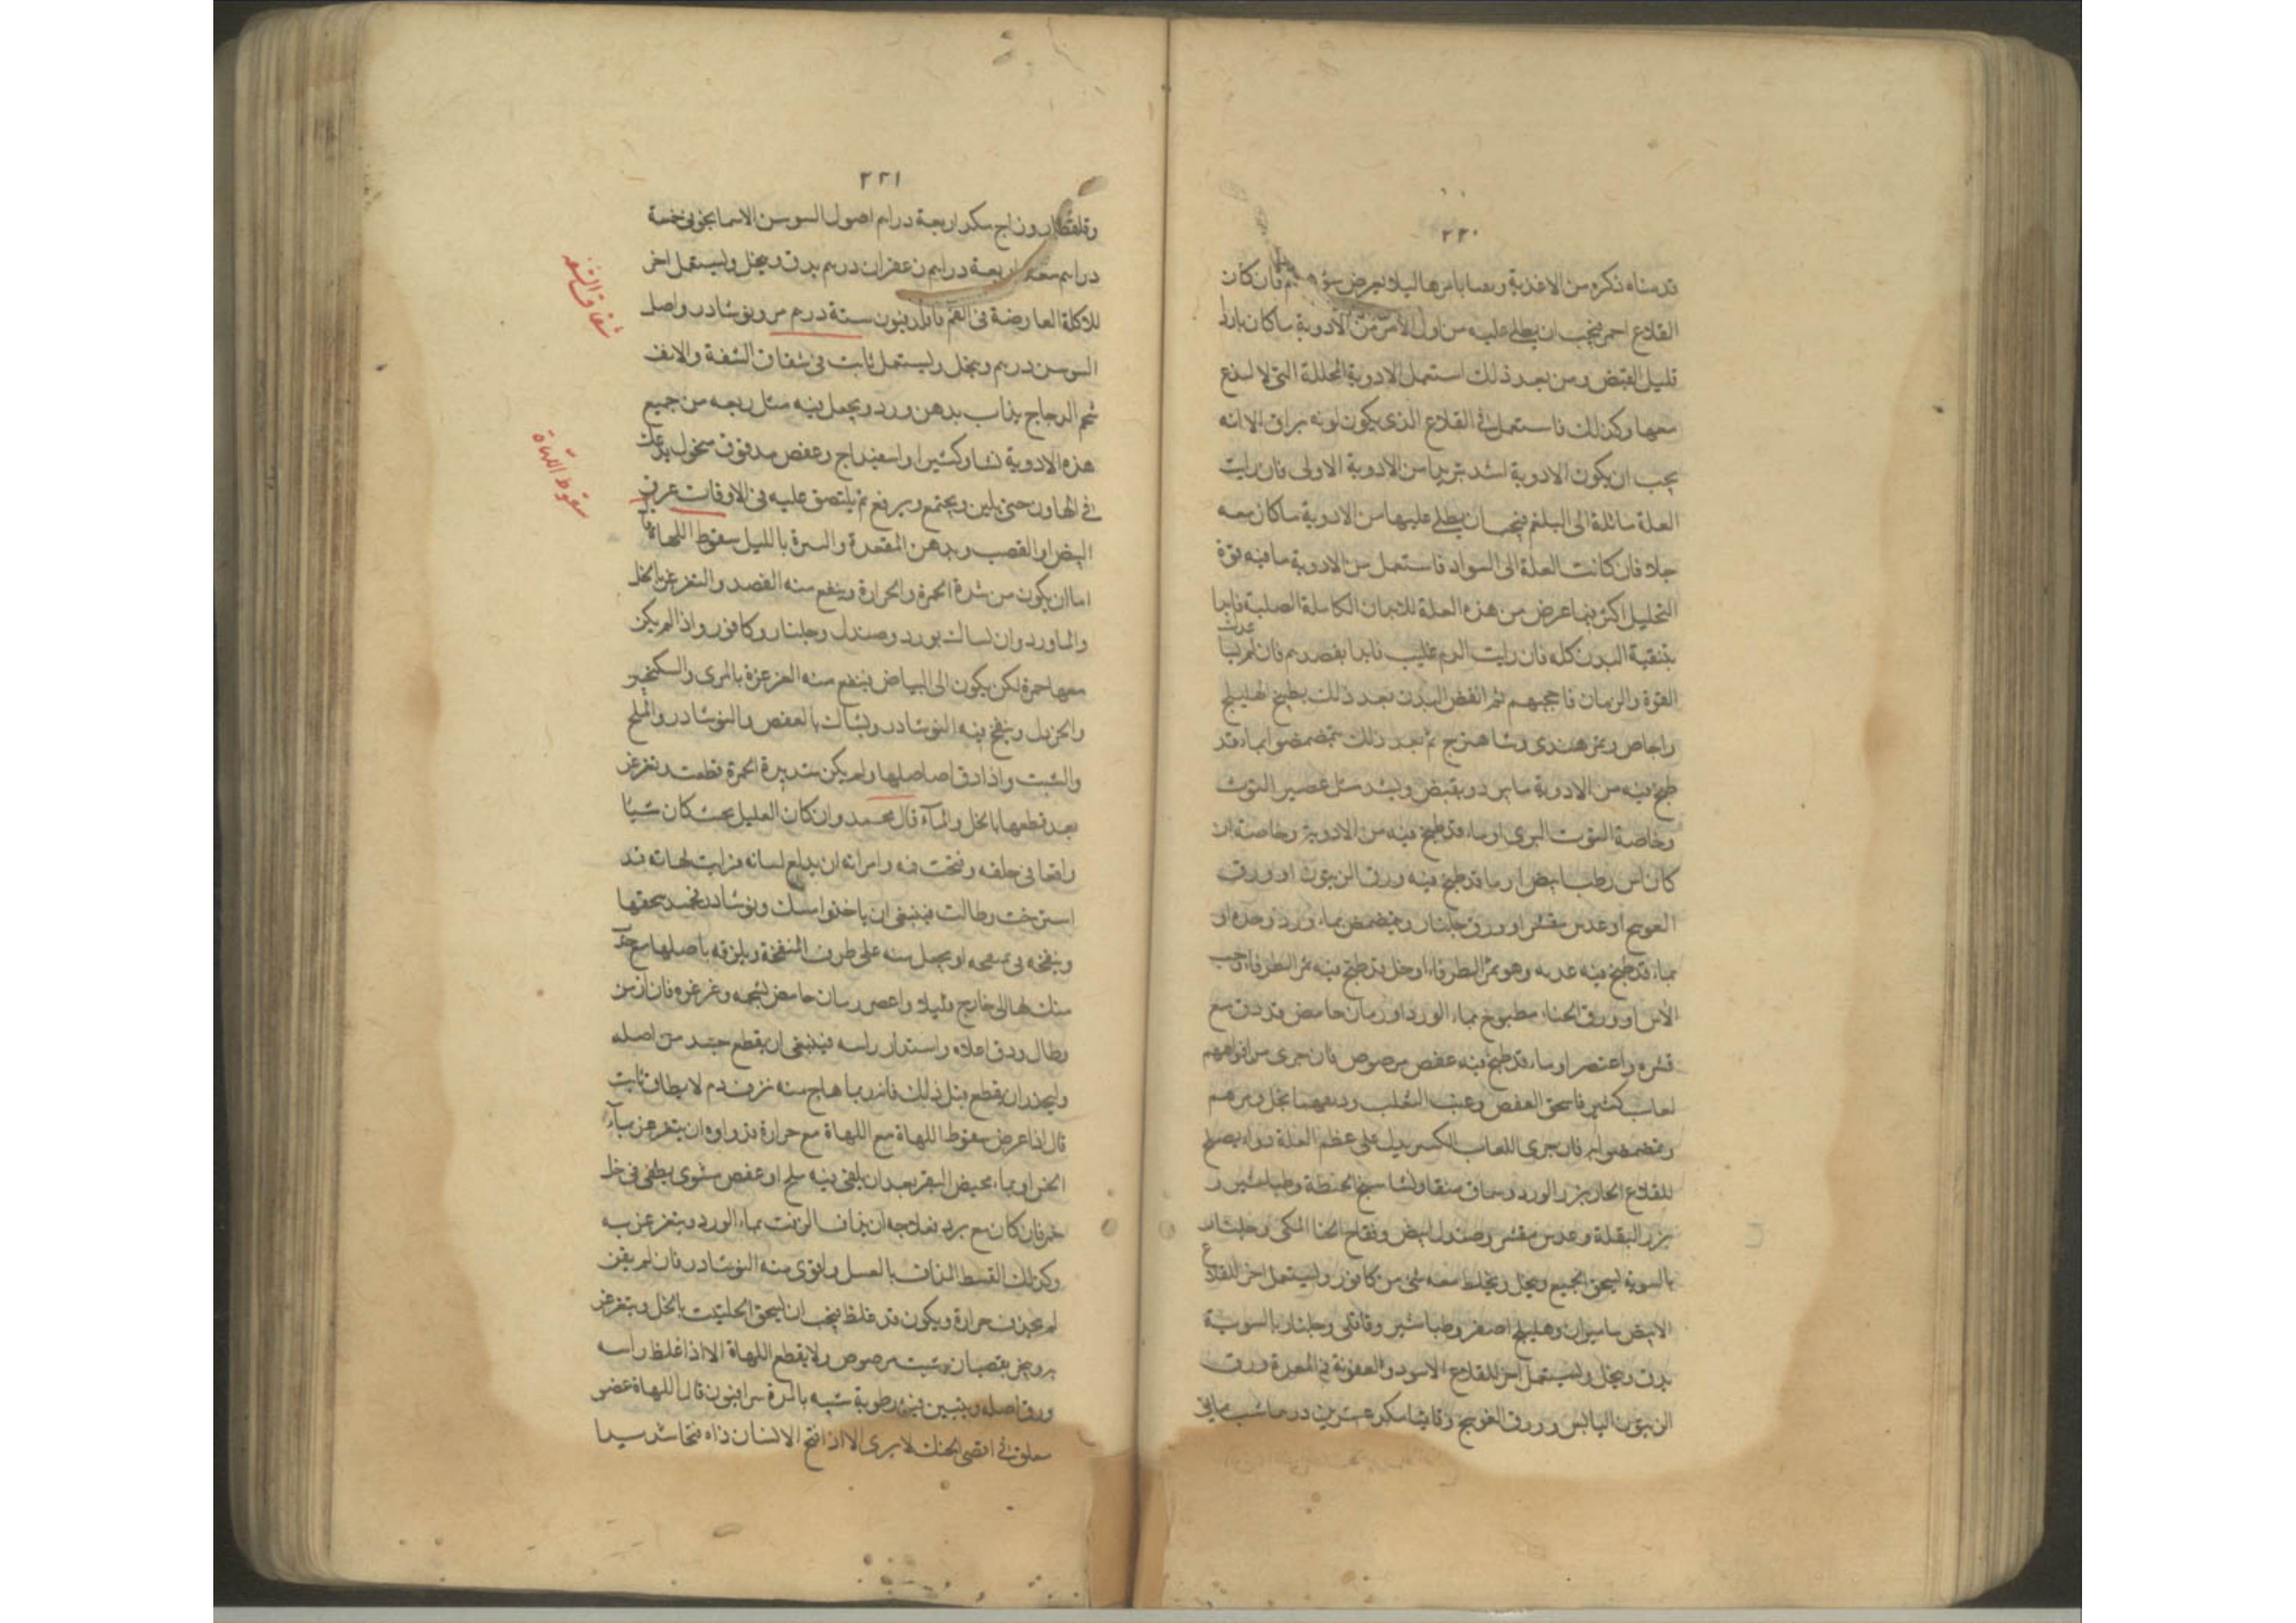 ٢٢٠
قدمناه ذكره من الاغذية
القلاع احمر فيجب ان يطلى عليه من اول الامر من الادوية ما كان باردا
قليل القبض ومن بعد ذلك استعمل الادوية المحللة التى لا لذع
معها وكذلك فاستعمل فى القلاع الذى يكون لونه براق الا انه
يجب ان يكون الادوية اشد تبريدا من الادوية الاولى فان رايت
العلة مائلة الى البلغم فيجب ان يطلى عليها من الادوية ما كان معه
جلا فان كانت العلة الى السواد فاستعمل من الادوية ما فيه قوة
التحليل اكثر فيما عرض من هذه العلة للابدان الكاملة الصلبة فابدا
بتنقية البدن كله فان رايت الدم غليب فابدا بفصدهم فان لم
القوة والزمان فاحجمهم ثم انفض البدن بعد ذلك بطبيخ الهليلج
واجاص وتمر هندى وشاهترج ثم بعد ذلك يتمضمضوا بماء قد
طبخ فيه من الادوية ما يبرد ويقبض ويشد مثل عصير التوت
وخاصة التوت البرى او ماء قد طبخ فيه من الادوية وخاصة ان
كان اس رطب ابيض او ما قد طبخ فيه ورق الزيتون او ورق
العوسج او عدس مقشر او ورق جلنار ويتمضمض بماء ورد وحده او
بماء قد طبخ فيه عذبه وهو ثمر الطرفاء او خل قد طبخ فيه ثمر الطرفاء وحب
الاس او ورق الحناء مطبوخ بماء الورد او رمان حامض قد دق مع
قشره واعتصر او ماء قد طبخ فيه عفص مرضوض فان جرى من افواههم
لعاب كثير فاسحق العفص وعنب الثعلب
وتمضمضوا به فان جرى اللعاب الكثير يدل على عظم العلة دواء يصلح
للقلاع الحار بزر الورد وسماق منقا ونشا سبخ الحنطة وطباشير و
بزر البقلة وعدس مقشر وصندل ابيض وفقاح الحنا المكى وجلنار
بالسوية يسحق الجميع وينخل ويخلط معه شى من كافور ويستعمل اخر للقلاع
الابيض ماميران وهليلج اصفر وطباشير وقاقلى وجلنار بالسوية
يدق وينخل ويستعمل اخر للقلاع الاسود والعفونة فى المعدة ورق
الزيتون اليابس وورق العوسج وقاقيا سكر عشرين درما شب يمانى
٢٢١
وقلقطار وزاج سكر اربعة دراهم اصول السوسن الاسمانجونى خمسة
دراهم سعد اربعة دراهم زعفران درهم يدق وينخل ويستعمل اخر
للاكلة العارضة فى الفم افربيون ستة درهم مر ونوشادر واصل
السوسن درهم وينخل ويستعمل ثابت فى شقاق الشفة والانف
شحم الدجاج يذاب بدهن ورد ويجعل فيه مثل ربعه من جميع
هذه الادوية نشا وكثيرا واسفيداج وعفص مدقوق منخول يدعك
فى الهاون حتى يلين ويجتمع ويرفع ثم يلتصق عليه فى الاوقات غرقى
البيض او القصب ويدهن المقعدة والسرة بالليل سقوط اللهاة
اما ان يكون من شدة الحمرة والحرارة وينفع منه الفصد والتغرغر بالخل
والماورد وان لسالت بورد وصندل وجلنار وكافور واذا لم يكن
معها حمرة لكن يكون الى البياض ينتفع منه الغرغرة بالمرى والسكنجبين
والخردل وينفخ فيه النوشادر وتشال بالعفص والنوشادر والملح
والشبت واذا دق اصلها ولم يكن شديدة الحمرة قطعت وتغرغر
بعد قطعها بالخل والماء قال محمد وان كان العليل يحس كان شيا
واقعا فى حلقه وفتحت فمه وامرته ان يدلع لسانه فرايت لهاته قد
استرخت وطالت فينبغى ان ياخذوا مسك ونوشادر فجمد سحقها
وينفخه او يجعل منه على طرف المنفخة ويلزقه باصلها
الى خارج قليلا واعصر رمان حامض بشحمه وغرغره فان ازمن
وطال ودق اعلاه واستدار راسه فينبغى ان يقطع حينئذ من اصله
وليحذر ان يقطع قبل ذلك فانه ربما هاج منه نزف دم لا يطاق ثابت
قال اذا عرض سقوط اللهاة مع اللهاة مع حرارة فدواوه ان يتغرغر بماء
الخس او بماء مخيض البقر بعد ان يلقى فيه ملح او عفص مشوى يطفى فى خل
خمر فان كان مع برد فعلاجه ان يذاف الزفت بماء الورد ويتغرغر به
وكذلك القسط المذاف بالعسل واقوى منه النوشادر فان لم يقين
لم يحدث حرارة ويكون قد غلظ فيجب ان يسحق الحلتيت بالخل ويتغرغر
به ولا يقطع اللهاة الا اذا غلظ راسه
ورق اصله ويتبين فيه رطوبة شبه بالمرة سرابيون قال اللهاة عضو
معلق فى اقصى الحنك لا يرى الا اذا فتح الانسان فاه فتحا شديدا
شقاق الشفة
سقوط اللهاة